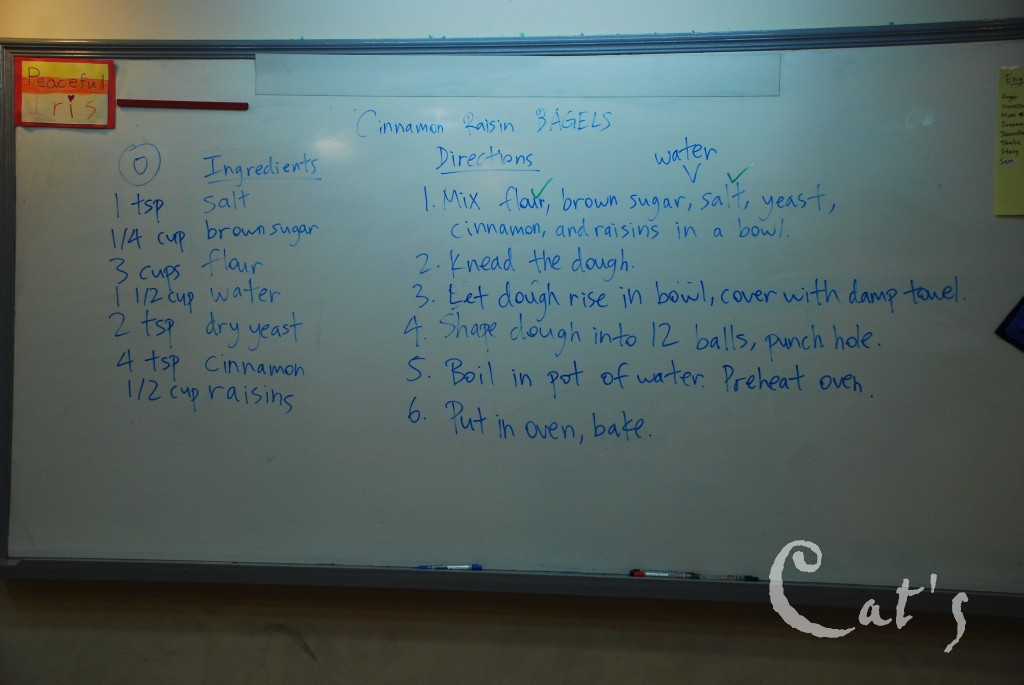 Peaceful
Iris
Cinnamon Raisin BAGELS
Ingredients
1 tsp salt
1/4 cup brown sugar
3 cups flour
1 1/2 cup water
2 tsp dry yeast
4 tsp cinnamon
1/2 cup raisins
Directions
water
1. Mix flour, brown sugar, salt, yeast,
cinnamon, and raisins in a bowl.
2. Knead the dough.
3. Let dough rise in bowl, cover with damp towel.
4. Shape dough into 12 balls, punch hole.
5. Boil in pot of water. Preheat oven.
6. Put in oven, bake.
Sam
Cat's